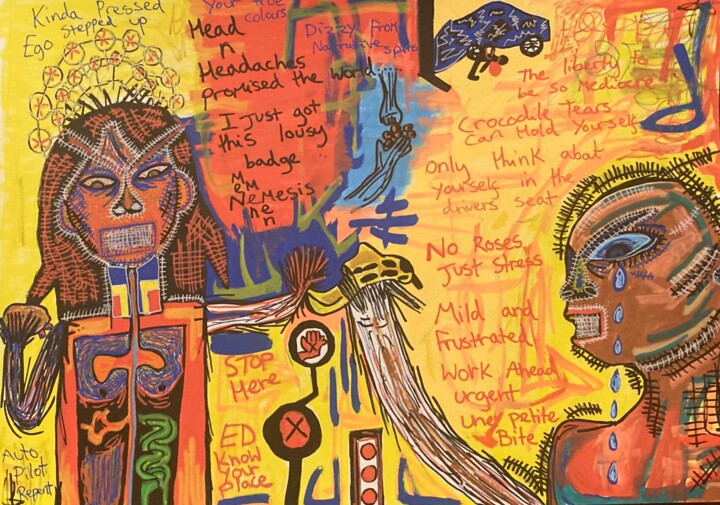 Kinda Pressed
Stepped up
Ego
Your true
colours
Head
n
Headaches
promised the world...
I Just got
this lousy
badge
Memnen
Nemesis
Dizzy From
Narrative
The liberty to
be so Mediocre
Crocodile Tears
Can Mold Yourself
Only think about
yourself in the
drivers seat
No Roses
Just Stress
Mild and
Frustrated
Work Ahead
urgent
une petite
Bite
STOP
Here
X
ED
Know
Your
Place
Auto
Pilot
Repent